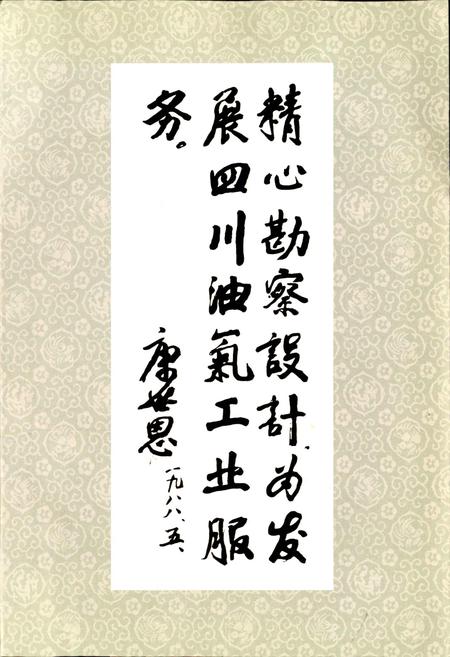 精心勘察設計、为发
展四川油氣工业服
务。
康世恩
一九八八、五、